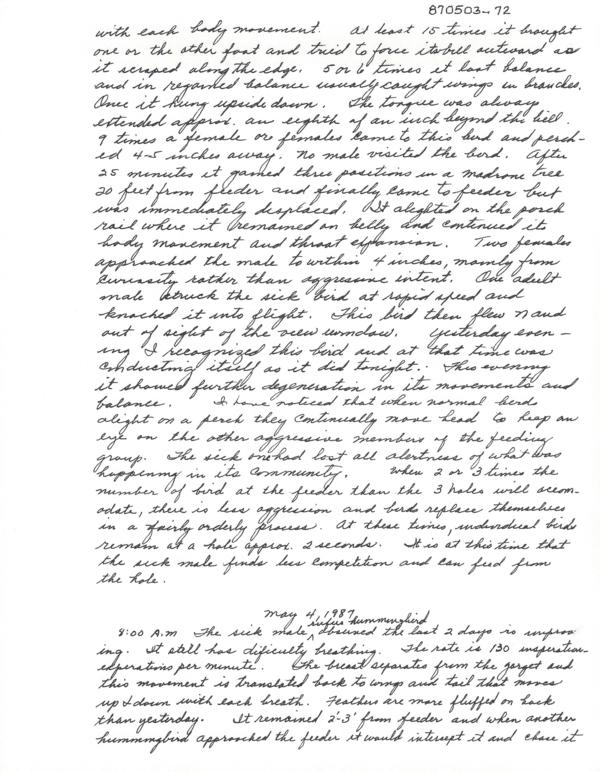 870503-72
with each body movement. At least 15 times it brought
one or the other foot and tried to force its bill outward as
it scraped along the edge. 5 or 6 times it lost balance
and in regained balance usually caught wings in branches.
Once it hung upside down. The tongue was always
extended approx. an eighth of an inch beyond the bill.
9 times a female or females came to this bird and perch-
ed 4-5 inches away. No male visited the bird. After
25 minutes it gained three positions in a madrone tree
20 feet from feeder and finally came to feeder but
was immediately desplaced. It alighted on the porch
rail where it remained on belly and continued its
body movement and throat expansion. Two females
approached the male to within 4 inches, mainly from
curiosity rather than aggressive intent. One adult
male struck the sick bird at rapid speed and
knocked it into flight. This bird then flew N and
out of sight of the view window. Yesterday even-
ing I recognized this bird and at that time was
conducting itself as it did tonight. This evening
it showed further degeneration in its movements and
balance. I have noticed that when normal birds
alight on a perch they continually move head to keep an
eye on the other aggressive members of the feeding
group. The sick one had lost all alertness of what was
happening in its community. When 2 or 3 times the
number of bird at the feeder than the 3 holes will accom-
odate, there is less aggression and birds replace themselves
in a fairly orderly process. At these times, individual birds
remain at a hole approx. 2 seconds. It is at this time that
the sick male finds less competition and can feed from
the hole.
May 4, 1987
rufus hummingbird
8:00 A.M The sick male ^ observed the last 2 days is improv
ing. It still has dificulty breathing. The rate is 130 insperation-
experations per minute. The breast separates from the gorget and
this movement is translated back to wings and tail that moves
up & down with each breath. Feathers are more fluffed on back
than yesterday. It remained 2'-3' from feeder and when another
hummingbird approached the feeder it would intersept it and chase it